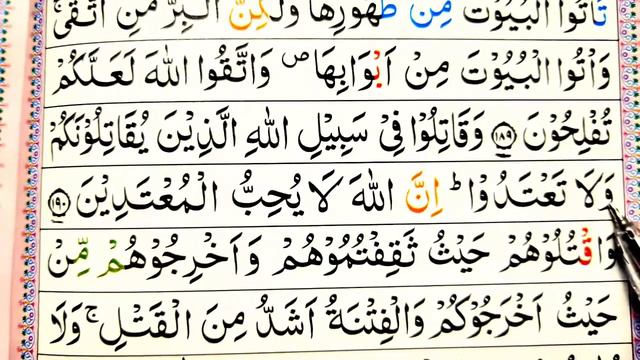 تَاْتُوا الْبُيُوْتَ مِنْ ظُهُوْرِهَا وَلٰكِنَّ الْبِرَّ مَنِ اتَّقٰىۚ
وَاْتُوا الْبُيُوْتَ مِنْ اَبْوَابِهَا ۪ وَاتَّقُوا اللّٰهَ لَعَلَّكُمْ
تُفْلِحُوْنَ ﴿۱۸۹﴾ وَقَاتِلُوْا فِىْ سَبِيْلِ اللّٰهِ الَّذِيْنَ يُقَاتِلُوْنَكُمْ
وَلَا تَعْتَدُوْا ؕ اِنَّ اللّٰهَ لَا يُحِبُّ الْمُعْتَدِيْنَ ﴿۱۹۰﴾
وَاقْتُلُوْهُمْ حَيْثُ ثَقِفْتُمُوْهُمْ وَاَخْرِجُوْهُمْ مِّنْ
حَيْثُ اَخْرَجُوْكُمْ وَالْفِتْنَةُ اَشَدُّ مِنَ الْقَتْلِ ۚ وَلَا